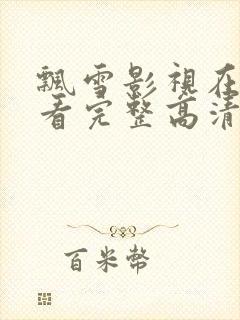 飄雪影視在
看完整高清
百米幣